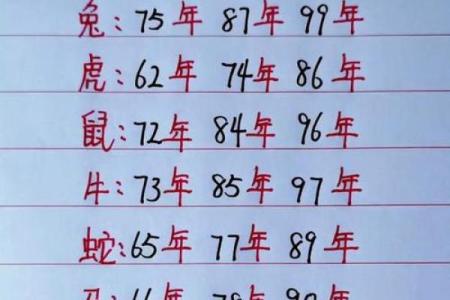 兔:75年 87年 99年
虎:62年 74年 86年
鼠:72年 84年 96年
牛:73年 85年 97年
蛇:65年 77年 89年